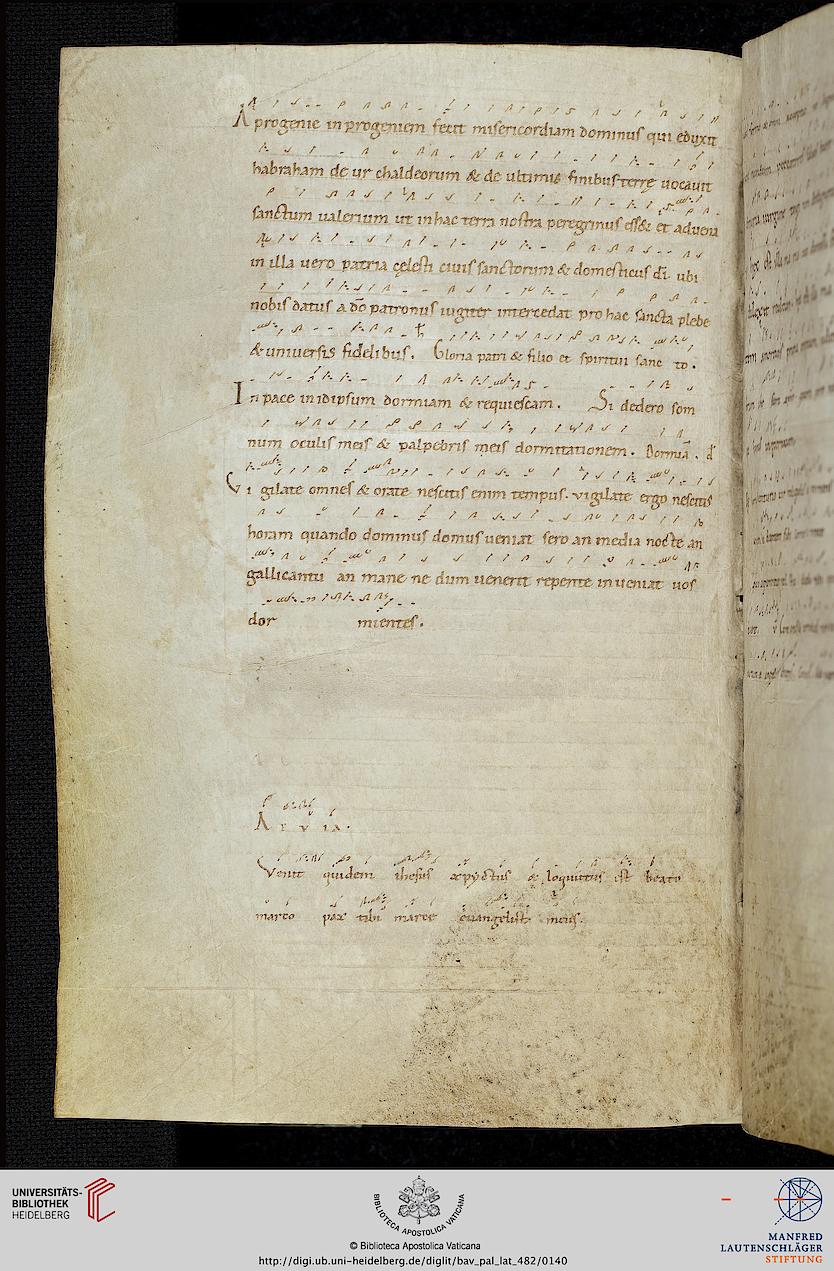 A progenie in progeniem fecit misericordiam dominus qui eduxit
habraham de ur chaldeorum & de ultimis finibus terrę vocavit
sanctum valerium ut in hac terra nostra peregrinus ess& et advena
in illa vero patria cęlesti civis sanctorum & domesticus dī ubi
nobis datus a dō patronus iugiter intercedat pro hac sancta plebe
& universis fidelibus. Gloria patri & filio et spiritui sanc to.
In pace in idipsum dormiam & requiescam. Si dedero som
num oculis meis & palpebris meis dormitationem. Dormiā.
Vi gilate omnes & orate nescitis enim tempus. vigilate ergo nescitis
horam quando dominus domus veniat sero an media nocte an
gallicantu an mane ne dum venerit repente inveniat vos
dor mientes.
A E V IA.
Venit quidem ihesus & loquutus est beato
marco pax tibi marce evangelista meus.
UNIVERSITÄTS-
BIBLIOTHEK
HEIDELBERG
BIBLIOTECA APOSTOLICA VATICANA
© Biblioteca Apostolica Vaticana
http://digi.ub.uni-heidelberg.de/diglit/bav_pal_lat_482/0140
MANFRED
LAUTENSCHLÄGER
STIFTUNG